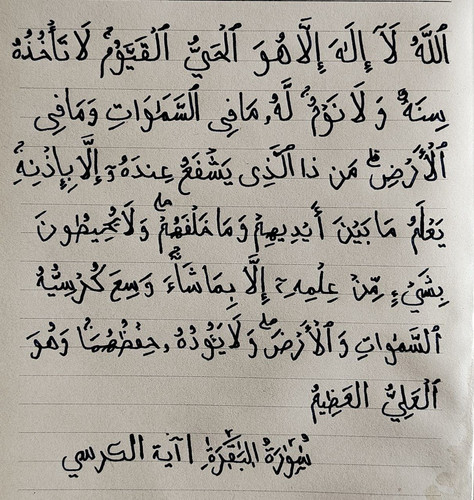 ٱللَّهُ لَآ إِلَٰهَ إِلَّا هُوَ ٱلْحَيُّ ٱلْقَيُّومُ ۚ لَا تَأْخُذُهُۥ
سِنَةٌ وَلَا نَوْمٌ ۚ لَّهُۥ مَا فِى ٱلسَّمَٰوَاتِ وَمَا فِى
ٱلْأَرْضِ ۗ مَن ذَا ٱلَّذِى يَشْفَعُ عِندَهُۥٓ إِلَّا بِإِذْنِهِۦ ۚ
يَعْلَمُ مَا بَيْنَ أَيْدِيهِمْ وَمَا خَلْفَهُمْ ۖ وَلَا يُحِيطُونَ
بِشَىْءٍ مِّنْ عِلْمِهِۦٓ إِلَّا بِمَا شَآءَ ۚ وَسِعَ كُرْسِيُّهُ
ٱلسَّمَٰوَاتِ وَٱلْأَرْضَ ۖ وَلَا يَـُٔودُهُۥ حِفْظُهُمَا ۚ وَهُوَ
ٱلْعَلِيُّ ٱلْعَظِيمُ
سُورَةُ البَقَرَةِ / آية الكرسي